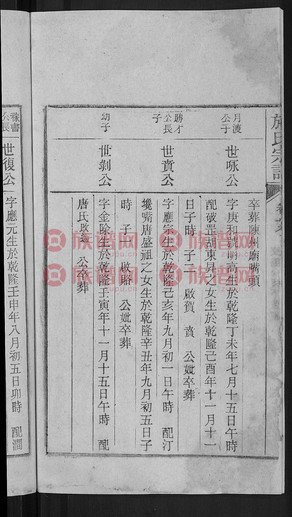 施氏宗譜
卒葬陳洲廟嘴頭
月波公子
世咏公
字庚和號明高生於乾隆丁未年七月十五日午時
配破罡胡東昇女生於乾隆己酉年十一月十一
日子時 子二 啟賀 貴 公娓卒葬
勝才公長子
世賁公
字應宗生於乾隆己亥年九月初一日午時 配汀
嘴唐盛祖之女生於乾隆辛丑年九月初五日子
時 子一 啟 公娓卒葬
幼子
世剝公
字金除生於乾隆壬寅年十一月十五日午時 配
唐氏 公卒葬
公長
世復公
字應元生於乾隆壬申年八月初五日卯時 配澗
族譜网